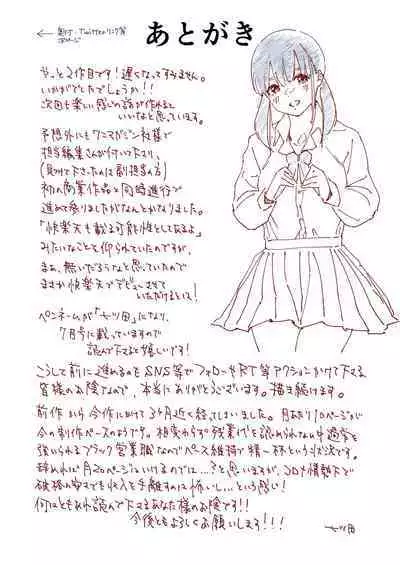 あとがき
← 奥付・Twitterリンク等
やっと2作目です！遅くなってすみません。
いかがでしたでしょうか！！
次回も楽しい感じの話が作れると
いいなと思っています。
予想外にもワニマガジン社様で
担当編集さんが付いて下さり、
(見つけて下さったのは副担当の方)
初の商業作品と同時進行で
進めて参りましたがなんとかなりました。
「快楽天も載る可能性としてあるよ」
みたいなことを仰られていたのですが、
まぁ、無いだろうなと思っていたので
まさか快楽天でデビューさせて
いただけるとは！
ペンネームが「七ツ田」になり、
7月号に載っていますので
読んで下さると嬉しいです！
こうして前に進めるのもSNS等でフォローやRT等アクションかけて下さる
皆様のお陰なので、本当にありがとうございます。描き続けます。
前作から今作にかけて3ヶ月近く経ってしまいました。月あたり10ページが
今の制作ペースのようです。相変わらず残業代も認められない中過労を
強いられるブラック営業職なのでペース維持が精一杯という状況です。
辞めれば月20ページはいけるのでは…？と思いますが、コロナ情勢下で
破格の安さでも収入を手離すのは怖いし…という感じ！
何はともあれ読んで下さるあなた様のお陰です！！
今後ともよろしくお願いします！！！